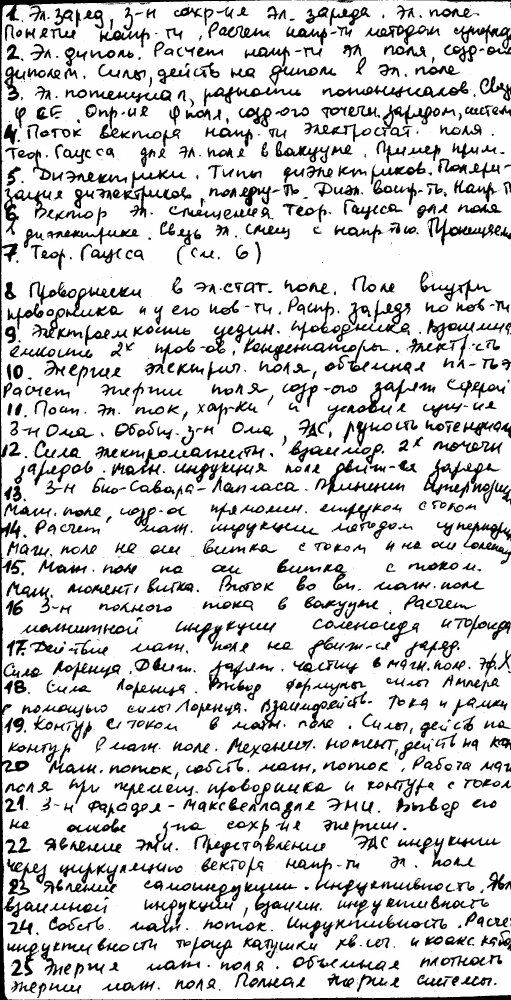 1. Эл. заряд, з-н сохр-ие эл. заряда. Эл. поле
Понятие напр-ти, Расчет напр-ти методом суперпоз
2. Эл. диполь. Расчет напр-ти эл поля, созд-ого
диполем. Силы, действ на диполь в эл. поле
3. Эл. потенциал, разность потенциалов. Связь
φ и E. Опр-ие φ поля, созд-ого точечн. зарядом, систем
4. Поток вектора напр-ти электростат. поля.
Теор. Гаусса для эл. поля в вакууме. Пример прим.
5. Диэлектрики. Типы диэлектриков. Поляри-
зация диэлектриков, поляриз-ть. Диэл. воспр-ть. Напр-ть
6 Вектор эл. смещения Теор. Гаусса для поля
в диэлектрике. Связь эл. смещ с напр-тью. Проницаем
7. Теор. Гаусса (см. 6)
8 Проводники в эл-стат. поле. Поле внутри
проводника и у его пов-ти. Распр. заряда по пов-ти
9. Электроемкость уедин. проводника. Взаимная
емкость 2х пров-ов. Конденсаторы. Электр-сть
10. Энергия электрич. поля, объемная пл-ть э
Расчет энергии поля, созд-ого заряж сферой
11. Пост. эл. ток, хар-ки и условия сущ-ия
З-н Ома. Обобщ. з-н Ома, ЭДС, разность потенциал
12. Сила электромагнитн. взаимод. 2х точечн
зарядов. Магн. индукция поля движ-ся заряда
13. З-н Био-Савара-Лапласа. Принцип суперпозиции
Магн. поле, созд-ое прямолин. отрезком с током
14. Расчет магн. индукции методом суперпозиц
Магн. поле на оси витка с током и на оси соленоид
15. Магн. поле на оси витка с током.
Магн. момент витка. Виток во вн. магн. поле
16 З-н полного тока в вакууме. Расчет
магнитной индукции соленоида и тороида
17. Действие магн. поля на движ-ся заряд.
Сила Лоренца. Движ. заряж. частиц в магн. поле. Эф. Х
18. Сила Лоренца. Вывод формулы силы Ампера
с помощью силы Лоренца. Взаимодейств. тока и рамки
19. Контур с током в магн. поле. Силы, действ на
контур в магн. поле. Механич. момент, действ на кон
20 Магн. поток, собств. магн. поток. Работа магн
поля при перемещ. проводника и контура с током
21. З-н Фарадея - Максвелла для ЭМИ. Вывод его
на основе з-на сохр-ия энергии.
22 Явление ЭМИ. Представление ЭДС индукции
через циркуляцию вектора напр-ти эл. поля
23 Явление самоиндукции. Индуктивность. Явл
взаимной индукции, взаимн. индуктивность
24. Собств. магн. поток. Индуктивность. Расчет
индуктивности тороид катушки кв. сеч. и коакс. кабел
25 Энергия магн. поля. Объемная плотность
энергии магн. поля. Полная энергия системы.